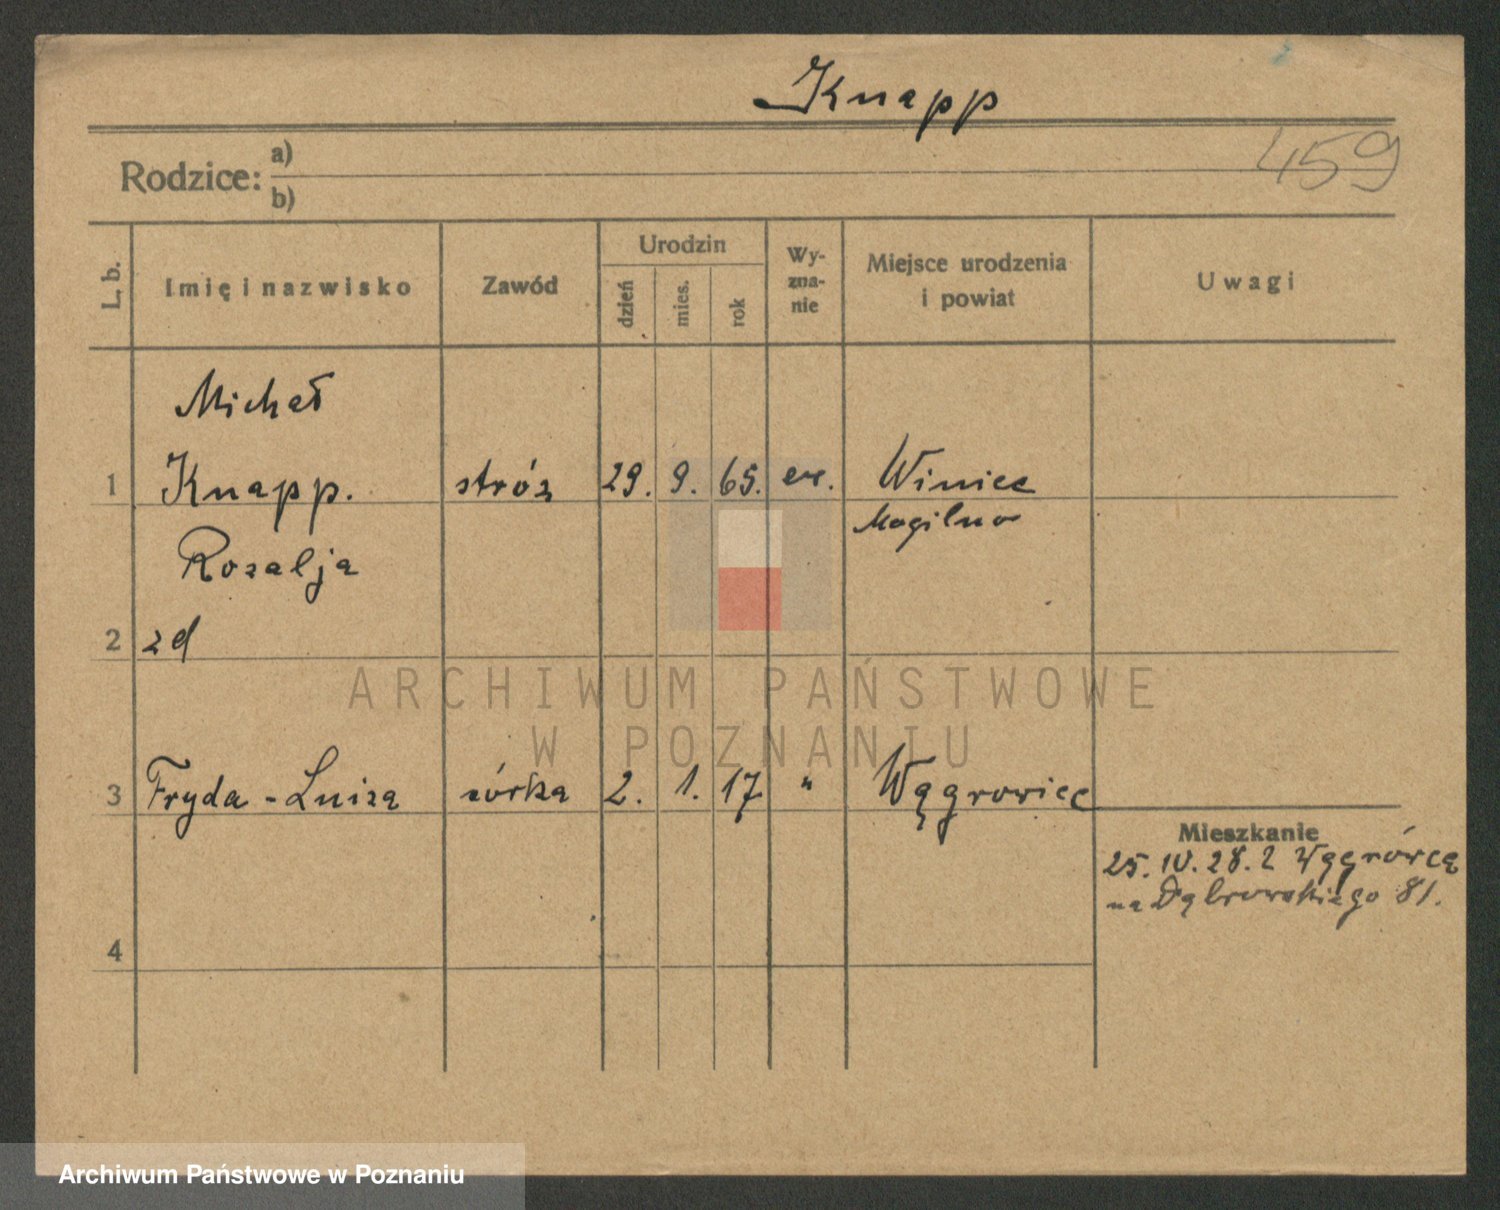 Knapp
459
Rodzice: a)
b)
L. b.
Imię i nazwisko
Zawód
Urodzin
dzień
mies.
rok
Wy-
zna-
nie
Miejsce urodzenia
i powiat
Uwagi
Michał
1 Knapp. stróż 29. 9. 65. ew. Winiec
Mogilno
Rozalja
2
3 Fryda - Luiza córka 2. 1. 17 " Wągrowiec
Mieszkanie
25. IV. 28. z Wągrówca
na Dąbrowskiego 81.
4
ARCHIWUM PAŃSTWOWE
W POZNANIU
Archiwum Państwowe w Poznaniu